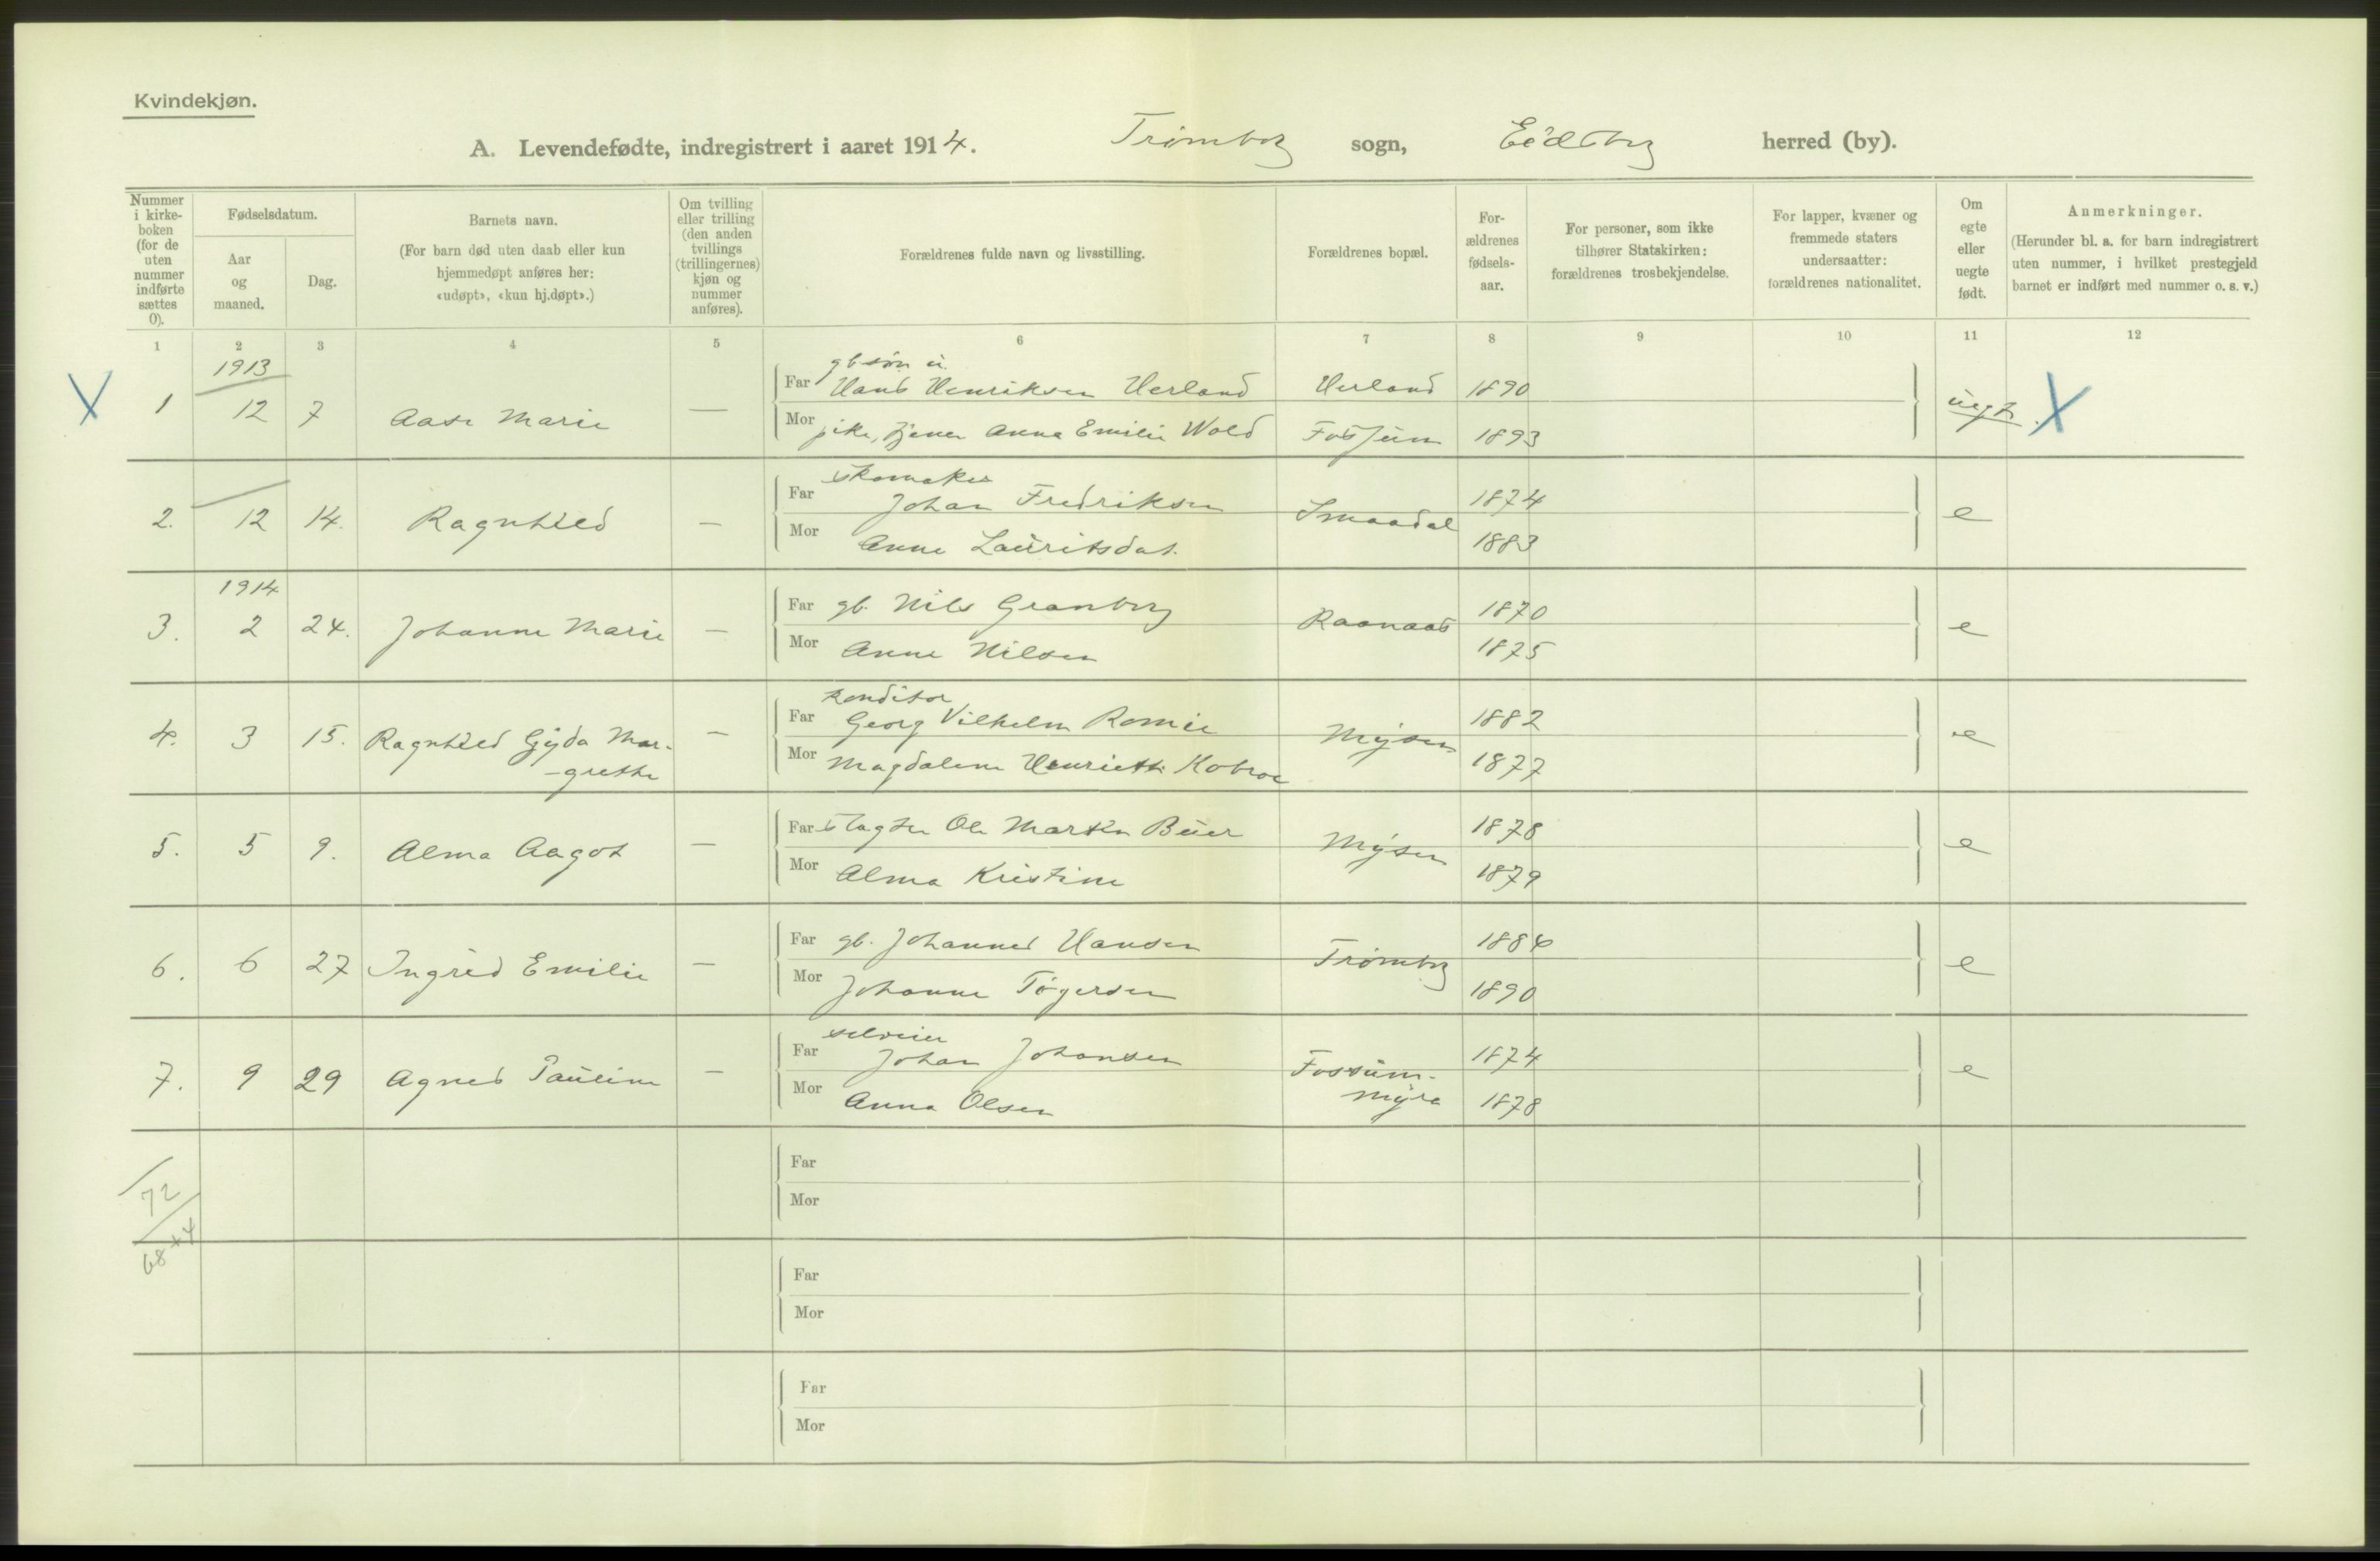 Kvindekjøn.
A. Levendefødte, indregistrert i aaret 1914. Trømborg sogn, Eidsberg herred (by).
Nummer i kirke-boken (for de uten nummer indførte sættes 0).
Fødselsdatum.
Aar og maaned.
Dag.
Barnets navn.
(For barn død uten daab eller kun hjemmedøpt anføres her: «udøpt», «kun hj.døpt».)
Om tvilling eller trilling (den anden tvillings (trillingernes) kjøn og nummer anføres).
Forældrenes fulde navn og livsstilling.
Forældrenes bopæl.
For-ældrenes fødsels-aar.
For personer, som ikke tilhører Statskirken: forældrenes trosbekjendelse.
For lapper, kvæner og fremmede staters undersaatter: forældrenes nationalitet.
Om egte eller uegte født.
Anmerkninger.
(Herunder bl. a. for barn indregistrert uten nummer, i hvilket prestegjeld barnet er indført med nummer o. s. v.)
1 2 3 4 5 6 7 8 9 10 11 12
1913
gb.søn u.
X 1 12 7 Aase Marie — Far Hans Henriksen Herland Herland 1890 uegt. X
Mor pike, tjener Anna Emilie Wold Fossum 1893
skomaker
2. 12 14. Ragnhild — Far Johan Fredriksen Smaadal 1874 e
Mor Anne Lauritsdat. 1883
1914
3. 2 24. Johanne Marie — Far gb. Nils Granborg Raanaas 1870 e
Mor Anne Nilsen 1875
konditor
4. 3 15. Ragnhild Gyda Mar- — Far Georg Vilhelm Mysen 1882 e
-grethe Mor Magdalene Henriette 1877
5. 5 9. Alma Aagot — Far slagter Ole Martin Buer Mysen 1878 e
Mor Alma Kristine 1879
6. 6 27 Ingrid Emilie — Far gb. Johannes Hansen Trømborg 1886 e
Mor Johanne Tøgersen 1890
selveier
7. 9 29 Agnes Pauline — Far Johan Johansen Fossum- 1874 e
Mor Anna Olsen myra 1878
Far
72
Mor
68 + 4
Far
Mor
Far
Mor